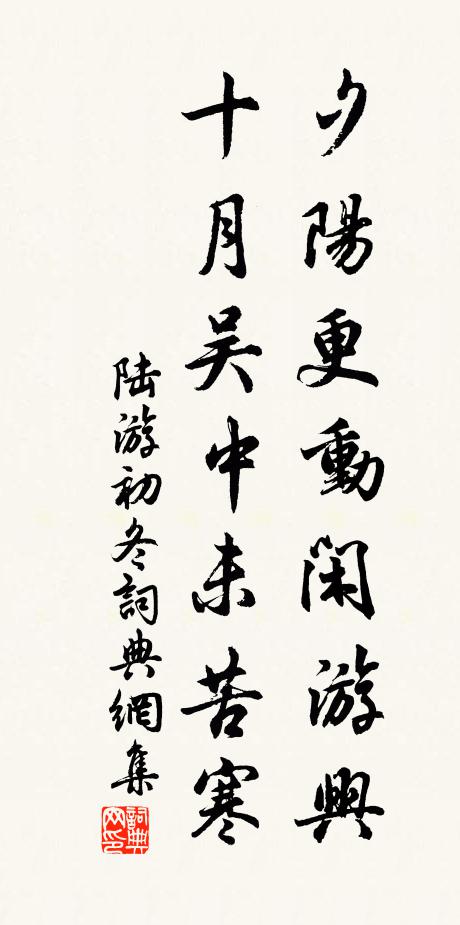 夕陽更動閑游興
十月吴中未苦寒
陆游初冬詞典網集
詞典
网印